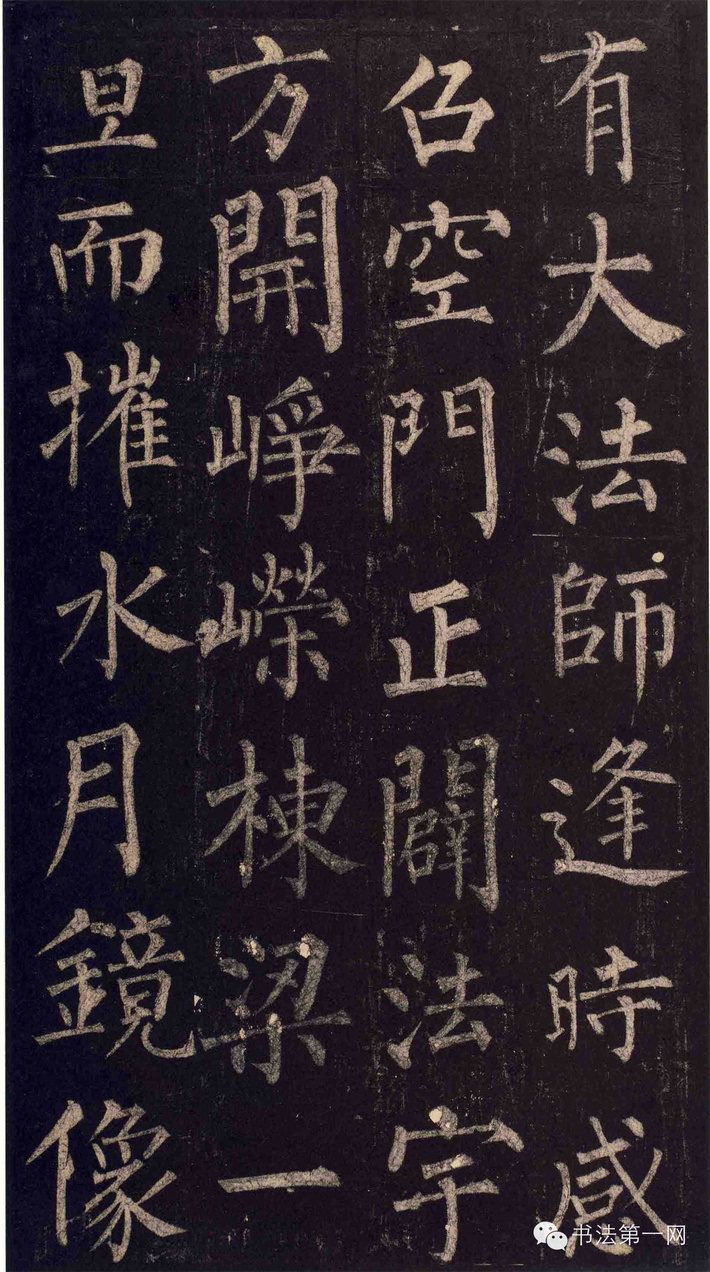 有大法師逢時感
召空門正闢法宇
方開崢嶸棟梁一
旦而摧水月鏡像
书法第一网